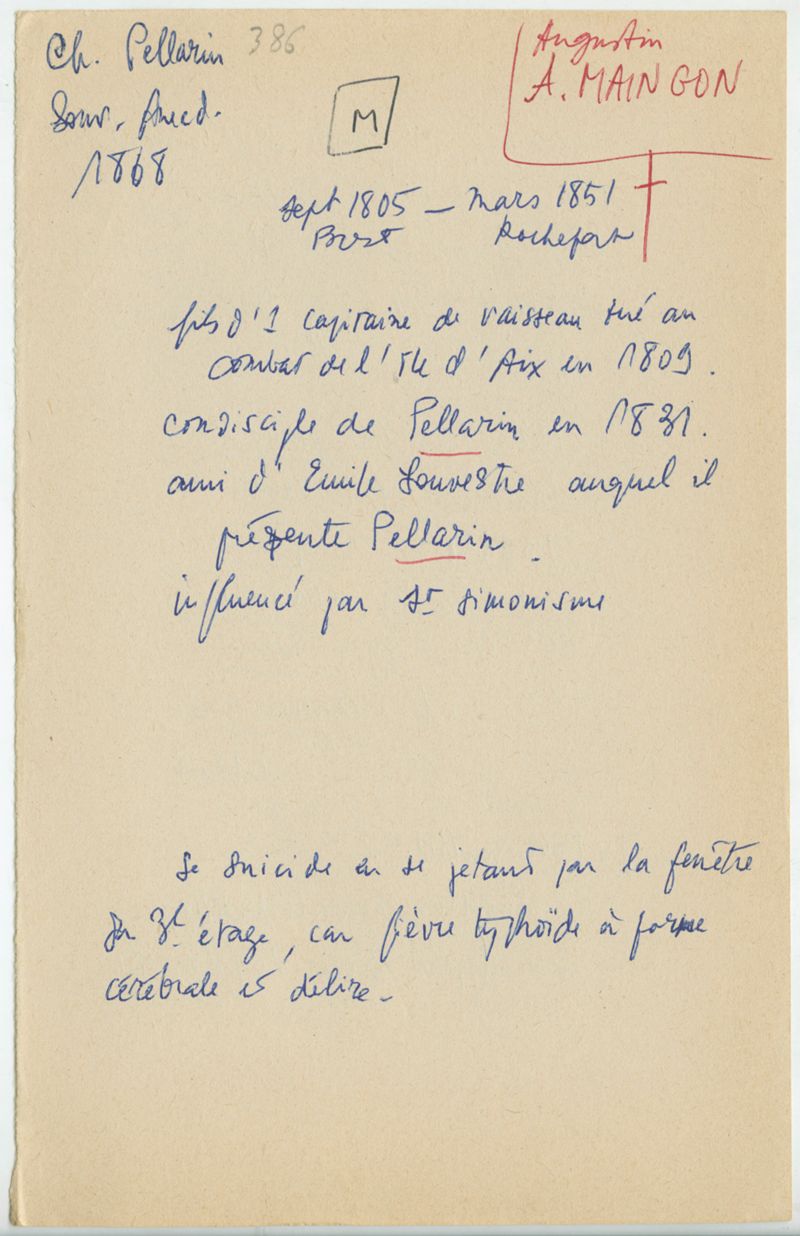 Ch. Pellarin 386
Souv. Anecd.
1868
M
Augustin
A. MAINGON
sept 1805 — mars 1851
Brest Rochefort
fils d'1 capitaine de vaisseau tué au
combat de l'île d'Aix en 1809.
condisciple de Pellarin en 1831.
ami d'Emile Souvestre auquel il
présente Pellarin.
influencé par St simonisme
se suicide en se jetant par la fenêtre
du 3e étage, car fièvre typhoïde à forme
cérébrale et délire.